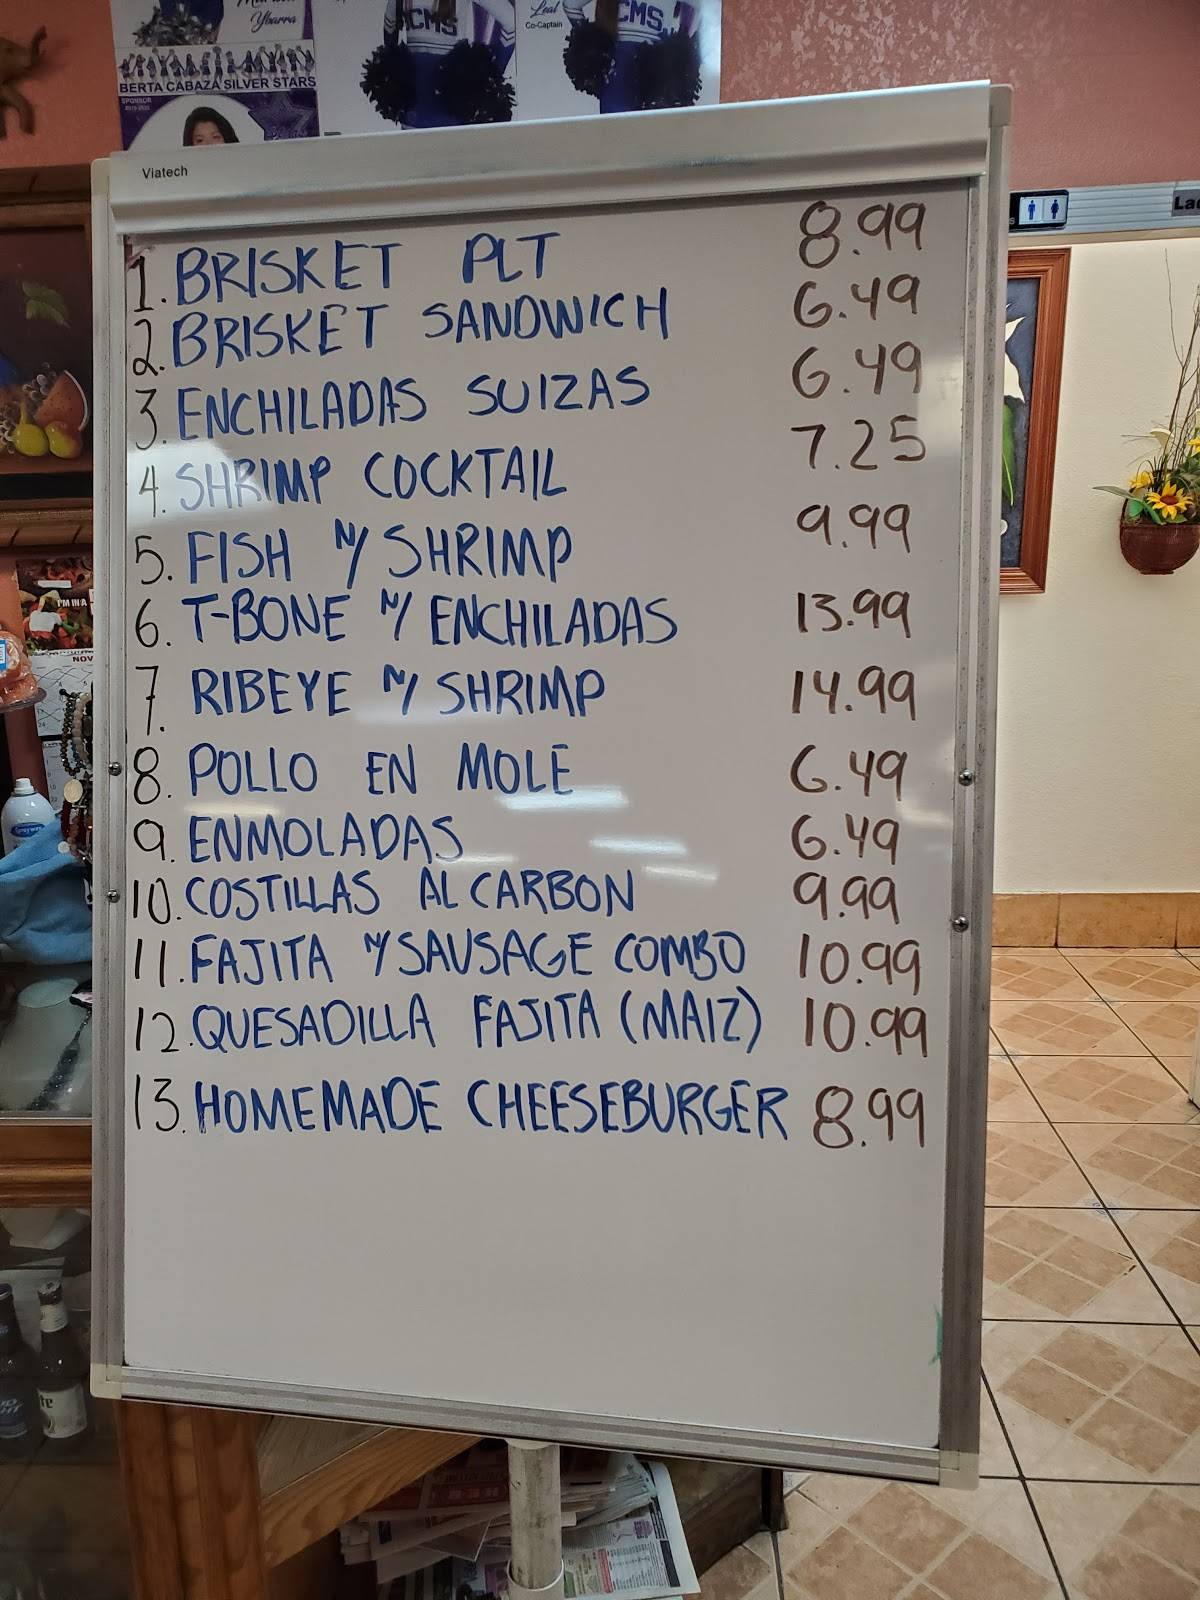 Ybarra
BERTA CABAZA SILVER STARS
SPONSOR
CMS
Leal
Co-Captain
CMS
Viatech
1. BRISKET PLT 8.99
2. BRISKET SANDWICH 6.49
3. ENCHILADAS SUIZAS 6.49
4. SHRIMP COCKTAIL 7.25
5. FISH N/ SHRIMP 9.99
6. T-BONE N/ ENCHILADAS 13.99
7. RIBEYE N/ SHRIMP 14.99
8. POLLO EN MOLE 6.49
9. ENMOLADAS 6.49
10. COSTILLAS AL CARBON 9.99
11. FAJITA N/ SAUSAGE COMBO 10.99
12. QUESADILLA FAJITA (MAIZ) 10.99
13. HOMEMADE CHEESEBURGER 8.99
I'M IN A
NOV